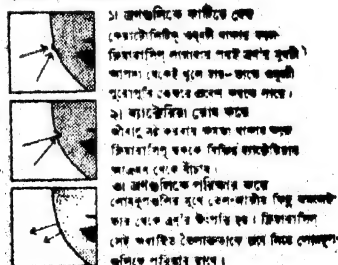 ১। ব্রণগুলিকে ফাটিয়ে দেয়
কেরাটোলিটিক্ গুণটি থাকার ফলে
ক্লিয়ারাসিল্ লাগাবার পরই ব্রণের মুখটী
আপনা থেকেই খুলে যায়— ফলে ওষুধটী
পুরোপুরি ভেতরে প্রবেশ করতে পারে।
২। ব্যাক্টেরিয়া রোধ করে
জীবাণু নষ্ট করবার ক্ষমতা থাকার ফলে
ক্লিয়ারাসিল্ ত্বককে বিভিন্ন ব্যাক্টেরিয়ার
আক্রমণ থেকে বাঁচায়।
৩। ব্রণগুলিকে পরিষ্কার করে
লোমকূপগুলির মুখে তেল-জাতীয় কিছু জমলেই
তার থেকে ব্রণ'র উৎপত্তি হয়। ক্লিয়ারাসিল
সেই অবাঞ্ছিত তৈলাক্তভাবকে শুষে নিয়ে লোমকূপ-
গুলিকে পরিষ্কার রাখে।